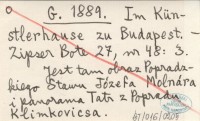 G. 1889. Im Kün-
stlerhause zu Budapest. –
Zipser Bote 27, nr 48: 3.
Jest tam obraz Popradz-
kiego Stawu Józefa Molnára
i panorama Tatr z Popradu
Klimkovicsa.